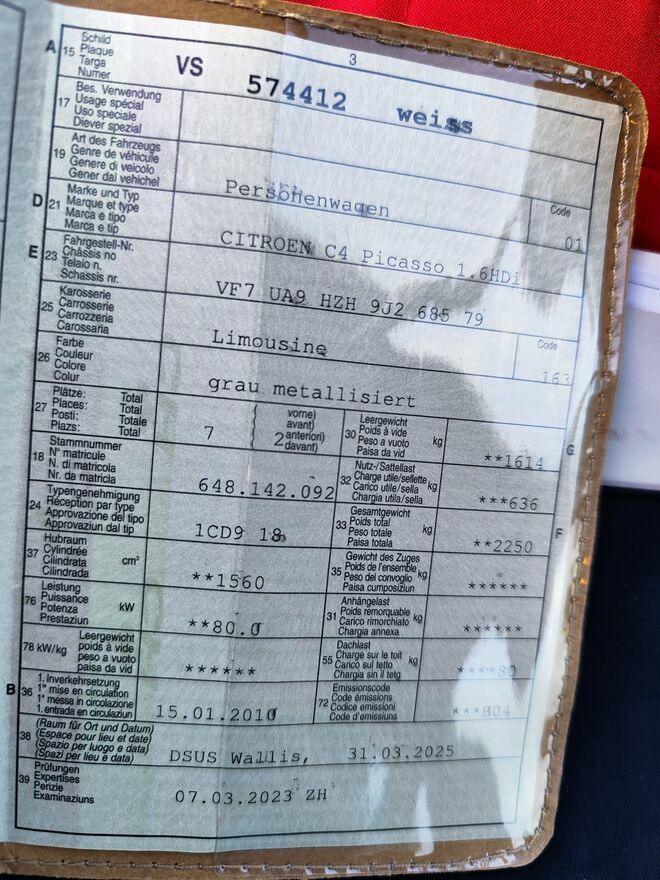 3
A 15 Schild
Plaque
Targa
Numer
VS 574412 weiss
17 Bes. Verwendung
Usage spécial
Uso speciale
Diever spezial
19 Art des Fahrzeugs
Genre de véhicule
Genere di veicolo
Gener dal vehichel
Personenwagen
Code
01
D 21 Marke und Typ
Marque et type
Marca e tipo
Marca e tip
CITROEN C4 Picasso 1.6HDi
E 23 Fahrgestell-Nr.
Châssis no
Telaio n.
Schassis nr.
VF7 UA9 HZH 9J2 685 79
25 Karosserie
Carrosserie
Carrozzeria
Carossaria
Limousine
Code
163
26 Farbe
Couleur
Colore
Colur
grau metallisiert
27 Plätze: Total
Places: Total
Posti: Totale
Plazs: Total
7 ( 2 vorne)
avant)
anteriori)
davant)
30 Leergewicht
Poids à vide
Peso a vuoto
Paisa da vid
kg
**1614
G
18 Stammnummer
N° matricule
N. di matricola
Nr. da matricla
648.142.092
32 Nutz-/Sattellast
Charge utile/sellette
Carico utile/sella
Chargia utila/sella
kg
***636
24 Typengenehmigung
Réception par type
Approvazione del tipo
Approvaziun dal tip
1CD9 18
33 Gesamtgewicht
Poids total
Peso totale
Paisa totala
kg
**2250
F
37 Hubraum
Cylindrée
Cilindrata
Cilindrada
cm³
**1560
35 Gewicht des Zuges
Poids de l'ensemble
Peso del convoglio
Paisa cumposiziun
kg
******
76 Leistung
Puissance
Potenza
Prestaziun
kW
**80.0
31 Anhängelast
Poids remorquable
Carico rimorchiato
Chargia annexa
kg
******
78 kW/kg Leergewicht
poids à vide
peso a vuoto
paisa da vid
******
55 Dachlast
Charge sur le toit
Carico sul tetto
Chargia sin il tetg
kg
****80
B 36 1. Inverkehrsetzung
1re mise en circulation
1a messa in circolazione
1. entrada en circulaziun
15.01.2010
72 Emissionscode
Code émissions
Codice emissioni
Code d'emissiuns
***B04
38 (Raum für Ort und Datum)
(Espace pour lieu et date)
(Spazio per luogo e data)
(Spazi per lieu e data)
DSUS Wallis, 31.03.2025
39 Prüfungen
Expertises
Perizie
Examinaziuns
07.03.2023 ZH